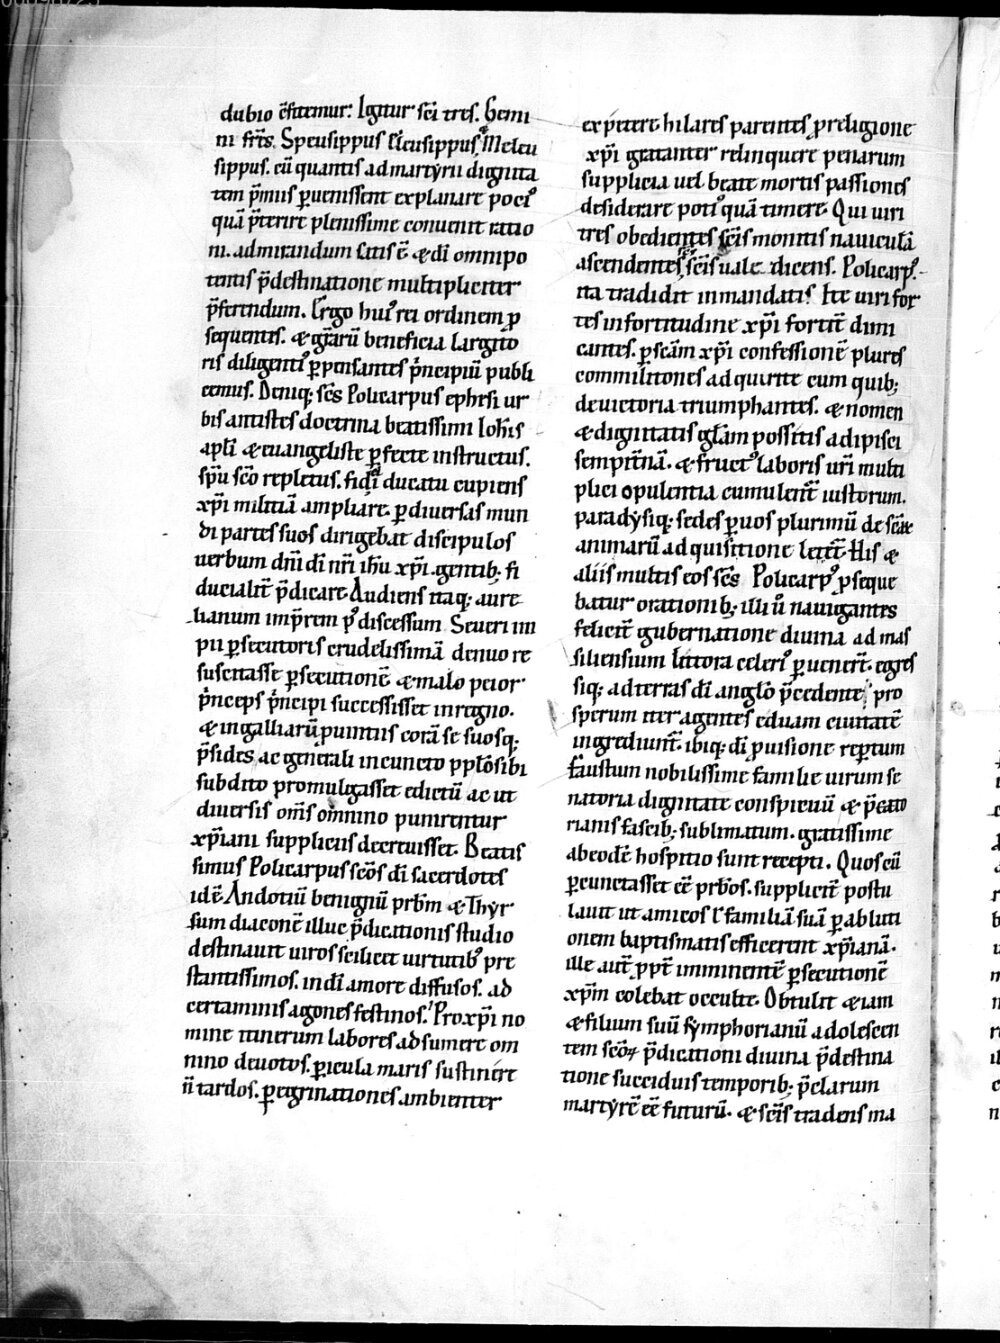 dubio c̄fitemur. Igitur sc̄i tres. Gemi
ni fr̄s. Speusippus Eleusippus Meleu
sippus. cū quantis ad martýrii dignita
tem p̄mius ꝑuenissent explanare poci᷒
quā p̄terire plenissime conuenit ratio
ni. admirandum satis ē ⁊ dī omnipo
tentis p̄destinatione multipliciter
p̄ferendum. Ergo hui᷒ rei ordinem ꝑ
sequentes. ⁊ gr̄arū beneficia largito
ris diligenti᷒ ꝑpensantes p̄ncipiū publi
cemus. Deniq; sc̄s Policarpus ephesi ur
bis antistes doctrina beatissimi Ioh̄is
apl̄i ⁊ euangeliste ꝑfecte instructus.
sp̄u sc̄o repletus. fidei ducatu cupiens
xp̄i militiā ampliare. ꝑ diuersas mun
di partes suos dirigebat discipulos
uerbum dn̄i dī nr̄i ih̄u xp̄i gentib; fi
ducialit̄ p̄dicare. Audiens itaq; aure
lianum imp̄rem p᷒ discessum Seueri im
pii ꝑsecutoris crudelissimā denuo re
suscitasse ꝑsecutionē ⁊ malo peior
p̄nceps p̄ncipi successisset in regno.
⁊ in galliarū ꝓuintiis corā se suosq;
p̄sides ac generali in cuncto pp̄lo sibi
subdito promulgasset edictū ac ut
diuersis om̄s omnino punirentur
xp̄iani suppliciis decreuisset. Beatis
simus Policarpus sc̄os dī sacerdotes
idē Andotiū benignū prb̄m ⁊ Thýr
sum diaconē illuc p̄dicationis studio
destinauit uiros scilicet uirtutib᷒ pre
stantissimos. in dī amore diffusos. ad
certaminis agones festinos. Pro xp̄i no
mine itinerum labores adsumere om
nino deuotos. ꝑicula maris sustinere
n̄ tardos. ꝑegrinationes ambienter
expetere hilares parentes ꝓ religione
xp̄i gratanter relinquere penarum
supplicia uel beate mortis passiones
desiderare poti᷒ quā timere. Qui uiri
tres obedientes sc̄is monitis nauiculā
ascendentes sc̄is uale dicens. Policarp᷒
ita tradidit in mandatis. Ite uiri for
tes in fortitudine xp̄i fortit̄ dimi
cantes. ꝑ sc̄am xp̄i confessionē plures
commilitones adquirite cum quib;
de uictoria triumphantes. ⁊ nomen
⁊ dignitatis gl̄am possitis adipisci
sempit̄nā. ⁊ fruct᷒ laboris ur̄i multi
plici opulentia cumulent̄ iustorum.
paradýsiq; sedes ꝑ uos plurimū de sc̄at
animarū adquisitione letet̄. His ⁊
aliis multis eos sc̄s Policarp᷒ ꝓseque
batur orationib; illi ū nauigantes
felicit̄ gubernatione diuina ad mas
siliensium littora celeri᷒ ꝑuener̄t. egres
siq; ad terras dī anglo p̄cedente. pro
sperum iter agentes eduam ciuitatē
ingrediunt̄. ibiq; dī ꝓuisione reptum
faustum nobilissime familie uirum se
natoria dignitate conspicuū ⁊ p̄eto
rianis fascib; sublimatum. gratissime
ab eodē hospitio sunt recepti. Quos cū
ꝑcunctasset eē prb̄os. supplicit̄ postu
lauit ut amicos l̄ familiā suā ꝑ abluti
onem baptismatis efficerent xp̄ianā.
ille aut̄ ꝓpt̄ imminentē ꝑsecutionē
xp̄m colebat occulte. Obtulit ⁊iam
⁊ filium suū sýmphorianū adolescen
tem sc̄oꝝ p̄dicationi diuina p̄destina
tione succiduis temporib; p̄clarum
martýrē eē futurū. ⁊ sc̄is tradens ma